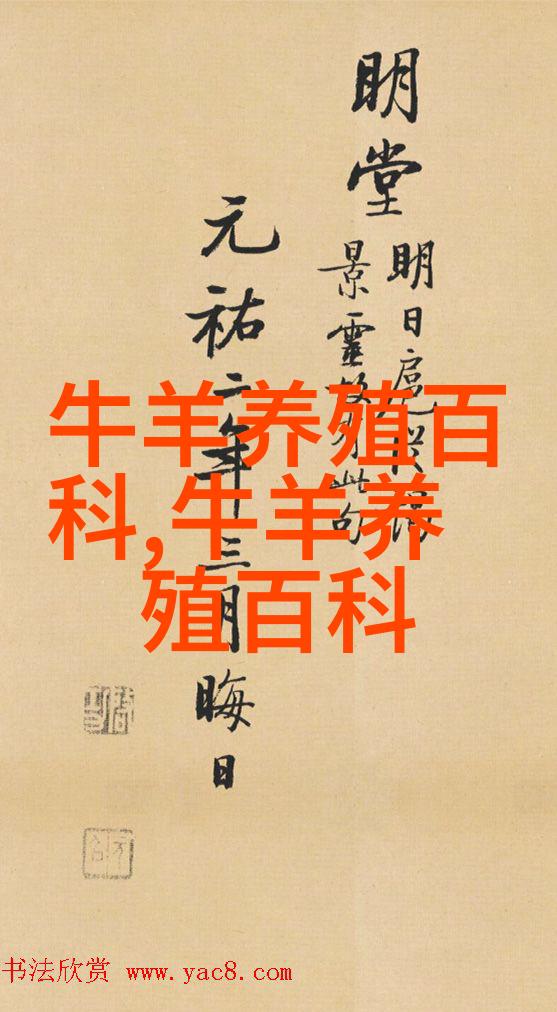 明堂
明日扈從
景靈 此句
元祐二年三月晦日
牛羊养殖百
科,牛羊养
殖百科
书法欣赏 www.yac8.com